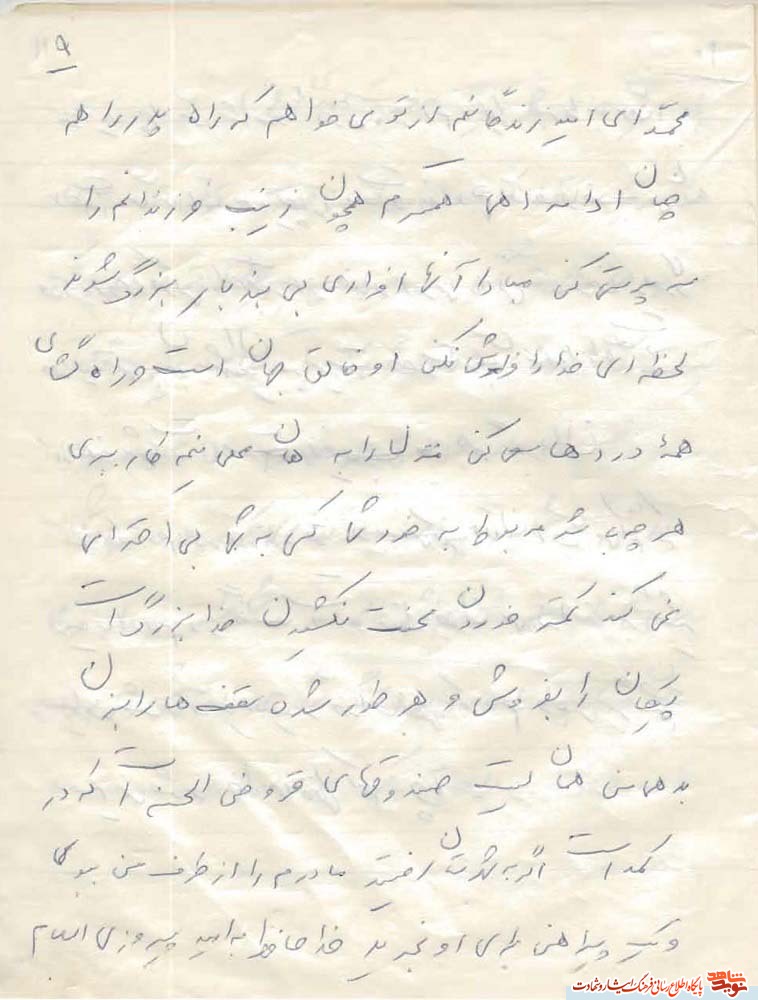 ۹
محمد ای امید زندگانیم از تو می خواهم که راه پدر را هم
چنان ادامه دهی همسرم همچون زینب فرزندانم را
سرپرستی کن مبادا آنها افرادی بی بند بار بزرگ شوند
لحظه ای خدا را فراموش نکن او خالق جهان است و راه گشای
همه دردها سعی کن منزل را به همان محل نیمه کاره ببری
هر چه باشد مربوط به خود شما کسی به شما بی احترامی
نمی کند کمتر خوردن منت نکشیدن خدا بزرگ است
پیکان را بفروش و هر طور شده سقف ها را بزن
بدهی من همان لیست صندوقهای قرض الحسنه است که در
کمد است اگر به تهران رفتید مادرم را از طرف من ببوس
و یک پیراهن برای او بخرید خداحافظ به امید پیروزی اسلام
پایگاه اطلاع رسانی فرهنگ ایثار و شهادت
نوید شاهد